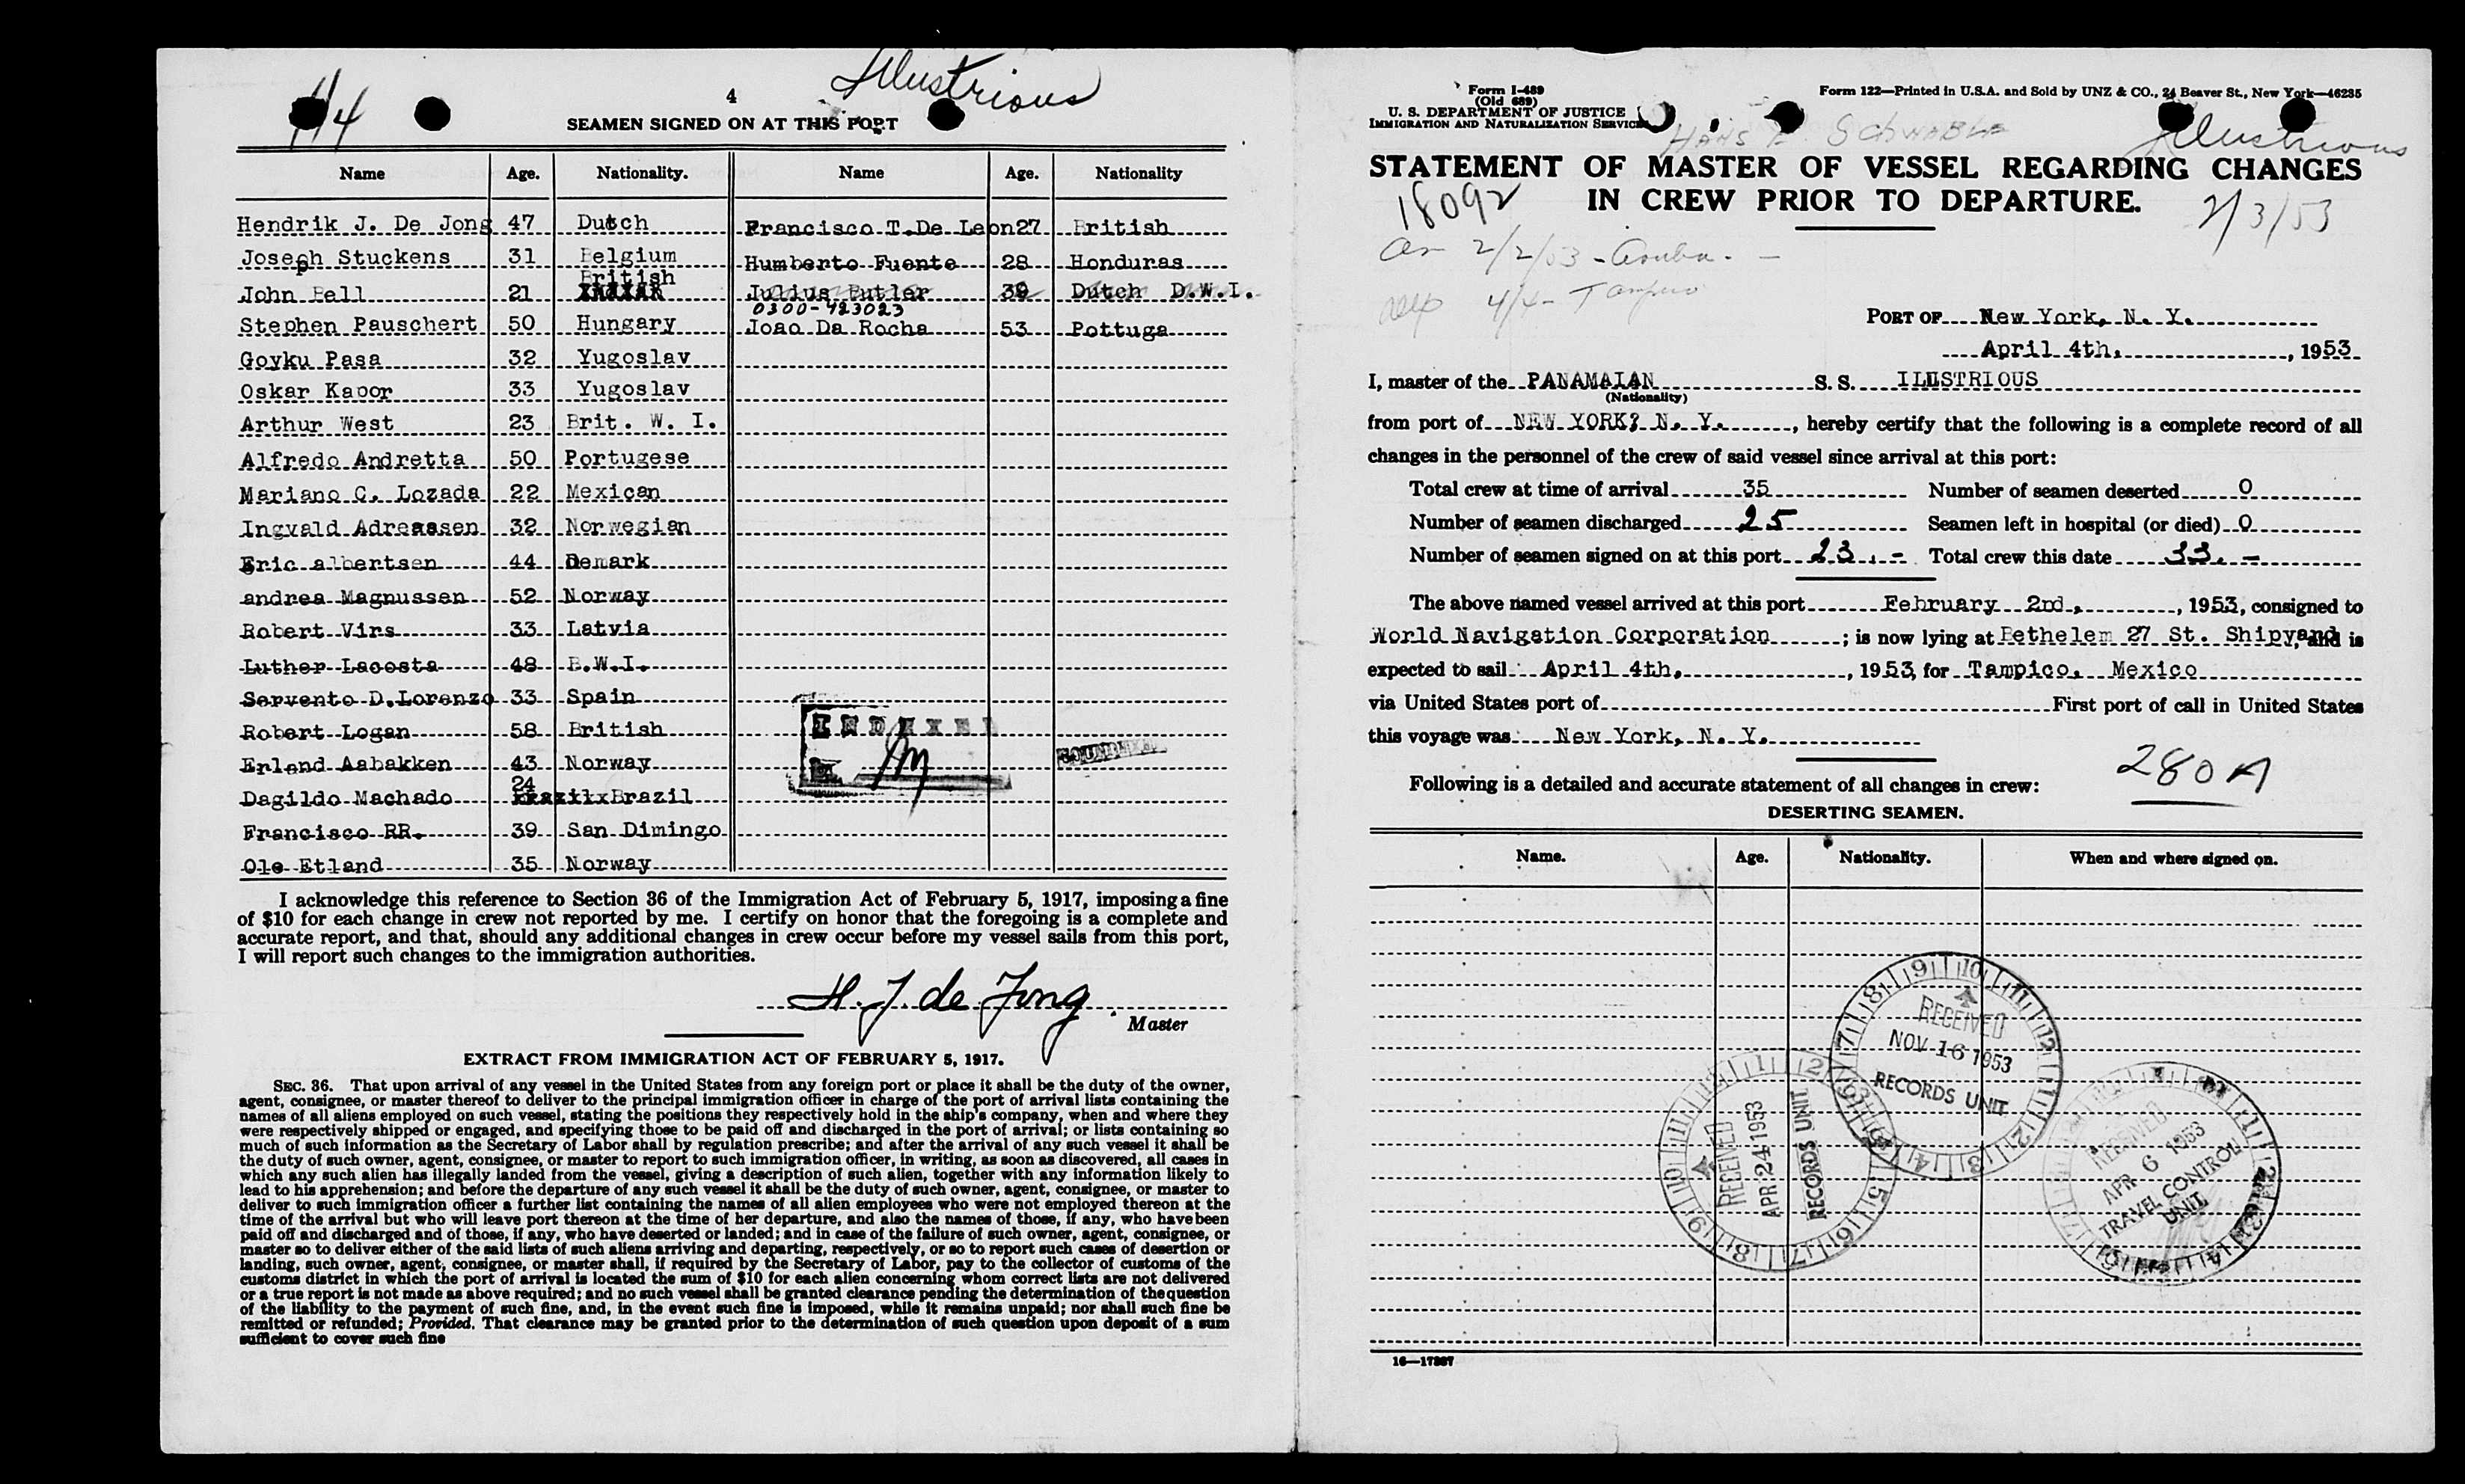 44
4
Illustrious
SEAMEN SIGNED ON AT THIS PORT
Name Age. Nationality. Name Age. Nationality
Hendrik J. De Jong 47 Dutch Francisco T.De Leon 27 British
Joseph Stuckens 31 Belgium Humberto Fuente 28 Honduras
British
John Bell 21 Julius Butler 39 Dutch D.W.I.
0300-423023
Stephen Pauschert 50 Hungary Joao Da Rocha 53 Pottuga
Goyku Pasa 32 Yugoslav
Oskar Kapor 33 Yugoslav
Arthur West 23 Brit. W. I.
Alfredo Andretta 50 Portugese
Mariano C. Lozada 22 Mexican
Ingvald Adreassen 32 Norwegian
Eric albertsen 44 Demark
andrea Magnussen 52 Norway
Robert Virs 33 Latvia
Luther Lacosta 48 B.W.I.
Servento D.Lorenzo 33 Spain
Robert Logan 58 British
INDEXED
Erland Aabakken 43 Norway
24
Dagildo Machado Brazil
Francisco RR. 39 San Dimingo
Ole Etland 35 Norway
I acknowledge this reference to Section 36 of the Immigration Act of February 5, 1917, imposing a fine
of $10 for each change in crew not reported by me. I certify on honor that the foregoing is a complete and
accurate report, and that, should any additional changes in crew occur before my vessel sails from this port,
I will report such changes to the immigration authorities.
H. J. de Jong
Master
EXTRACT FROM IMMIGRATION ACT OF FEBRUARY 5, 1917.
SEC. 36. That upon arrival of any vessel in the United States from any foreign port or place it shall be the duty of the owner,
agent, consignee, or master thereof to deliver to the principal immigration officer in charge of the port of arrival lists containing the
names of all aliens employed on such vessel, stating the positions they respectively hold in the ship's company, when and where they
were respectively shipped or engaged, and specifying those to be paid off and discharged in the port of arrival; or lists containing so
much of such information as the Secretary of Labor shall by regulation prescribe; and after the arrival of any such vessel it shall be
the duty of such owner, agent, consignee, or master to report to such immigration officer, in writing, as soon as discovered, all cases in
which any such alien has illegally landed from the vessel, giving a description of such alien, together with any information likely to
lead to his apprehension; and before the departure of any such vessel it shall be the duty of such owner, agent, consignee, or master to
deliver to such immigration officer a further list containing the names of all alien employees who were not employed thereon at the
time of the arrival but who will leave port thereon at the time of her departure, and also the names of those, if any, who have been
paid off and discharged and of those, if any, who have deserted or landed; and in case of the failure of such owner, agent, consignee, or
master so to deliver either of the said lists of such aliens arriving and departing, respectively, or so to report such cases of desertion or
landing, such owner, agent, consignee, or master shall, if required by the Secretary of Labor, pay to the collector of customs of the
customs district in which the port of arrival is located the sum of $10 for each alien concerning whom correct lists are not delivered
or a true report is not made as above required; and no such vessel shall be granted clearance pending the determination of the question
of the liability to the payment of such fine, and, in the event such fine is imposed, while it remains unpaid; nor shall such fine be
remitted or refunded; Provided, That clearance may be granted prior to the determination of such question upon deposit of a sum
sufficient to cover such fine
Form I-489
(Old 689)
U. S. DEPARTMENT OF JUSTICE
IMMIGRATION AND NATURALIZATION SERVICE
Form 122—Printed in U.S.A. and Sold by UNZ & CO., 24 Beaver St., New York—46235
Illustrious
STATEMENT OF MASTER OF VESSEL REGARDING CHANGES
IN CREW PRIOR TO DEPARTURE.
18092
2/3/53
Arr 2/2/53 - Aruba -
Dep 4/4 - Tampico
PORT OF New York, N. Y.
April 4th, , 1953
I, master of the PANAMAIAN S. S. ILLUSTRIOUS
(Nationality)
from port of NEW YORK? N. Y. , hereby certify that the following is a complete record of all
changes in the personnel of the crew of said vessel since arrival at this port:
Total crew at time of arrival 35 Number of seamen deserted 0
Number of seamen discharged 25 Seamen left in hospital (or died) 0
Number of seamen signed on at this port 23.- Total crew this date 33.-
The above named vessel arrived at this port February 2nd, , 1953, consigned to
World Navigation Corporation ; is now lying at Bethelem 27 St. Shipy and is
expected to sail April 4th, , 1953, for Tampico, Mexico
via United States port of First port of call in United States
this voyage was New York, N. Y.
280A
Following is a detailed and accurate statement of all changes in crew:
DESERTING SEAMEN.
Name. Age. Nationality. When and where signed on.
RECEIVED
NOV 16 1953
RECORDS UNIT
RECEIVED
APR 24 1953
RECORDS UNIT
RECEIVED
APR 6 1953
TRAVEL CONTROL
UNIT
16—17287